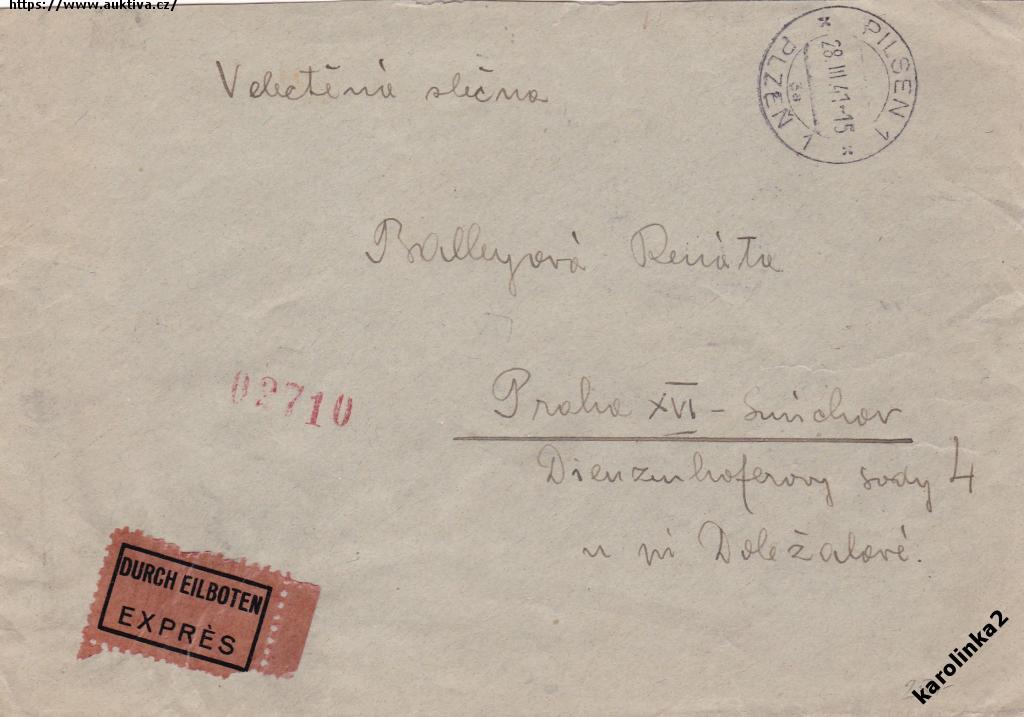 https://www.auktiva.cz/
PILSEN 1
28.III.41-15
3a
PLZEŇ 1
Velectěná slečna
Balleyová Renáta
02710
Praha XVI - Smíchov
Dienzenhoferovy sady 4
u pí Doležalové.
DURCH EILBOTEN
EXPRÈS
karolinka2